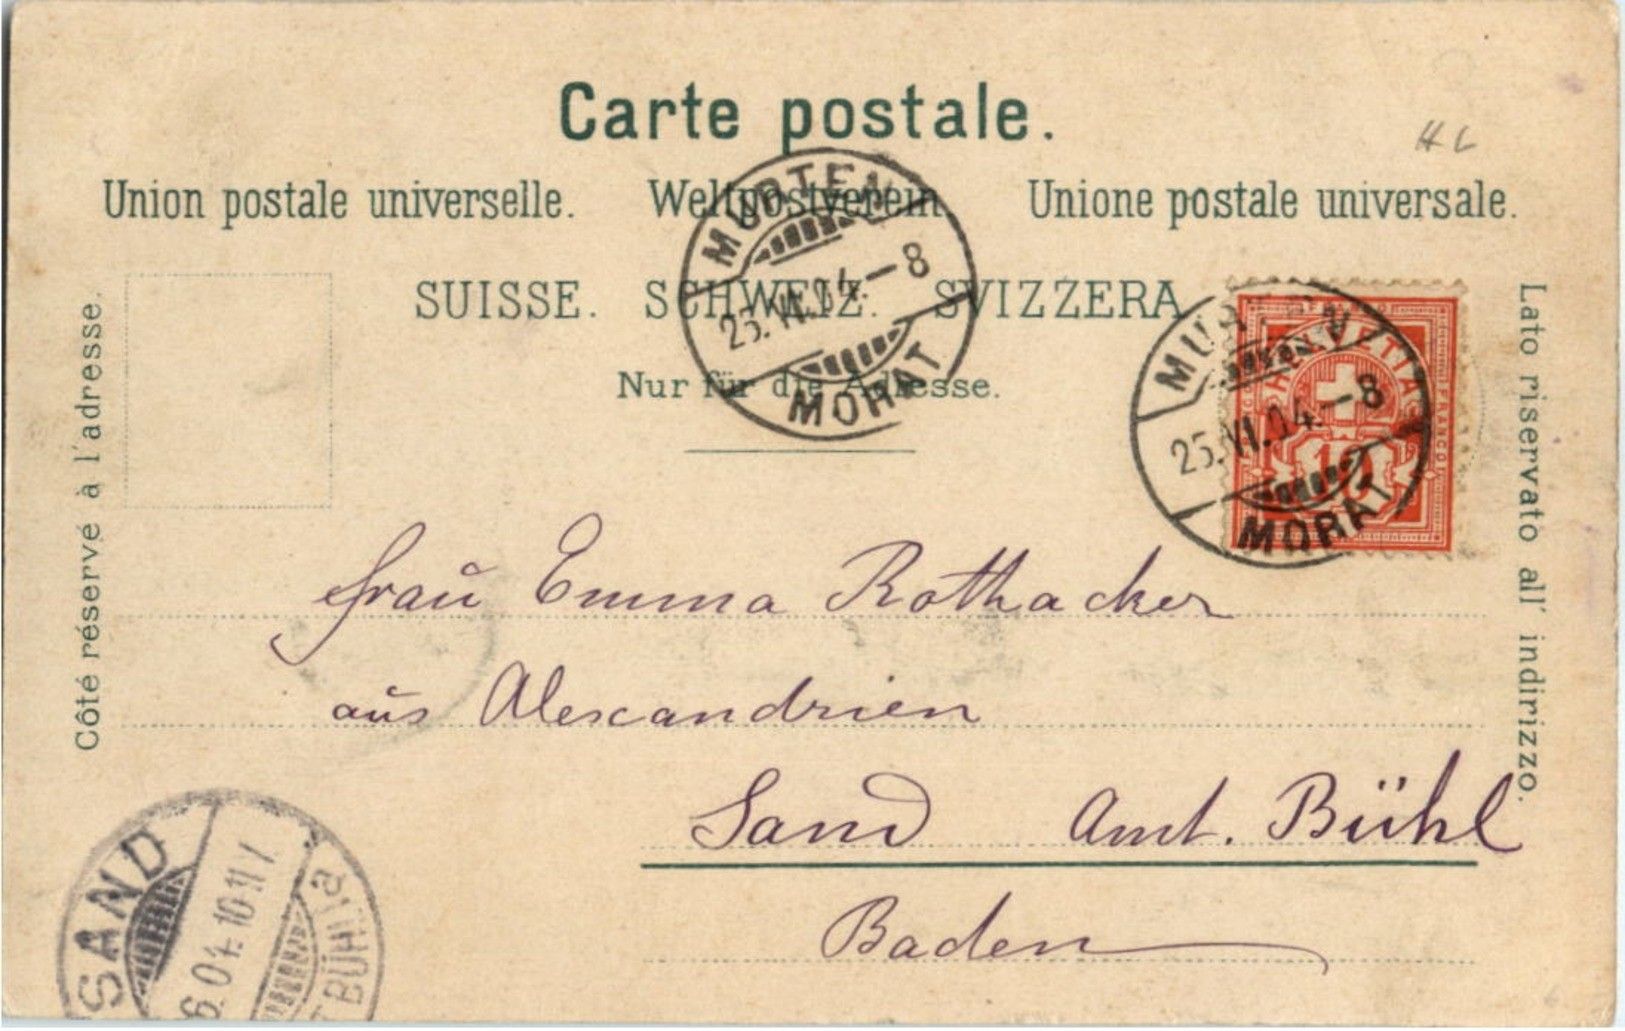 Carte postale.
Union postale universelle. Weltpostverein. Unione postale universale.
SUISSE. SCHWEIZ. SVIZZERA
Nur für die Adresse.
Côté réservé à l'adresse.
Lato riservato all' indirizzo.
MURTEN
25.VI.04.–8
MORAT
MURTEN
25.VI.04.–8
MORAT
HELVETIA
FRANCO
10
Frau Emma Rothacker
aus Alexandrien
Sand Amt. Bühl
Baden
SAND
6.04.10-11V
BÜHL